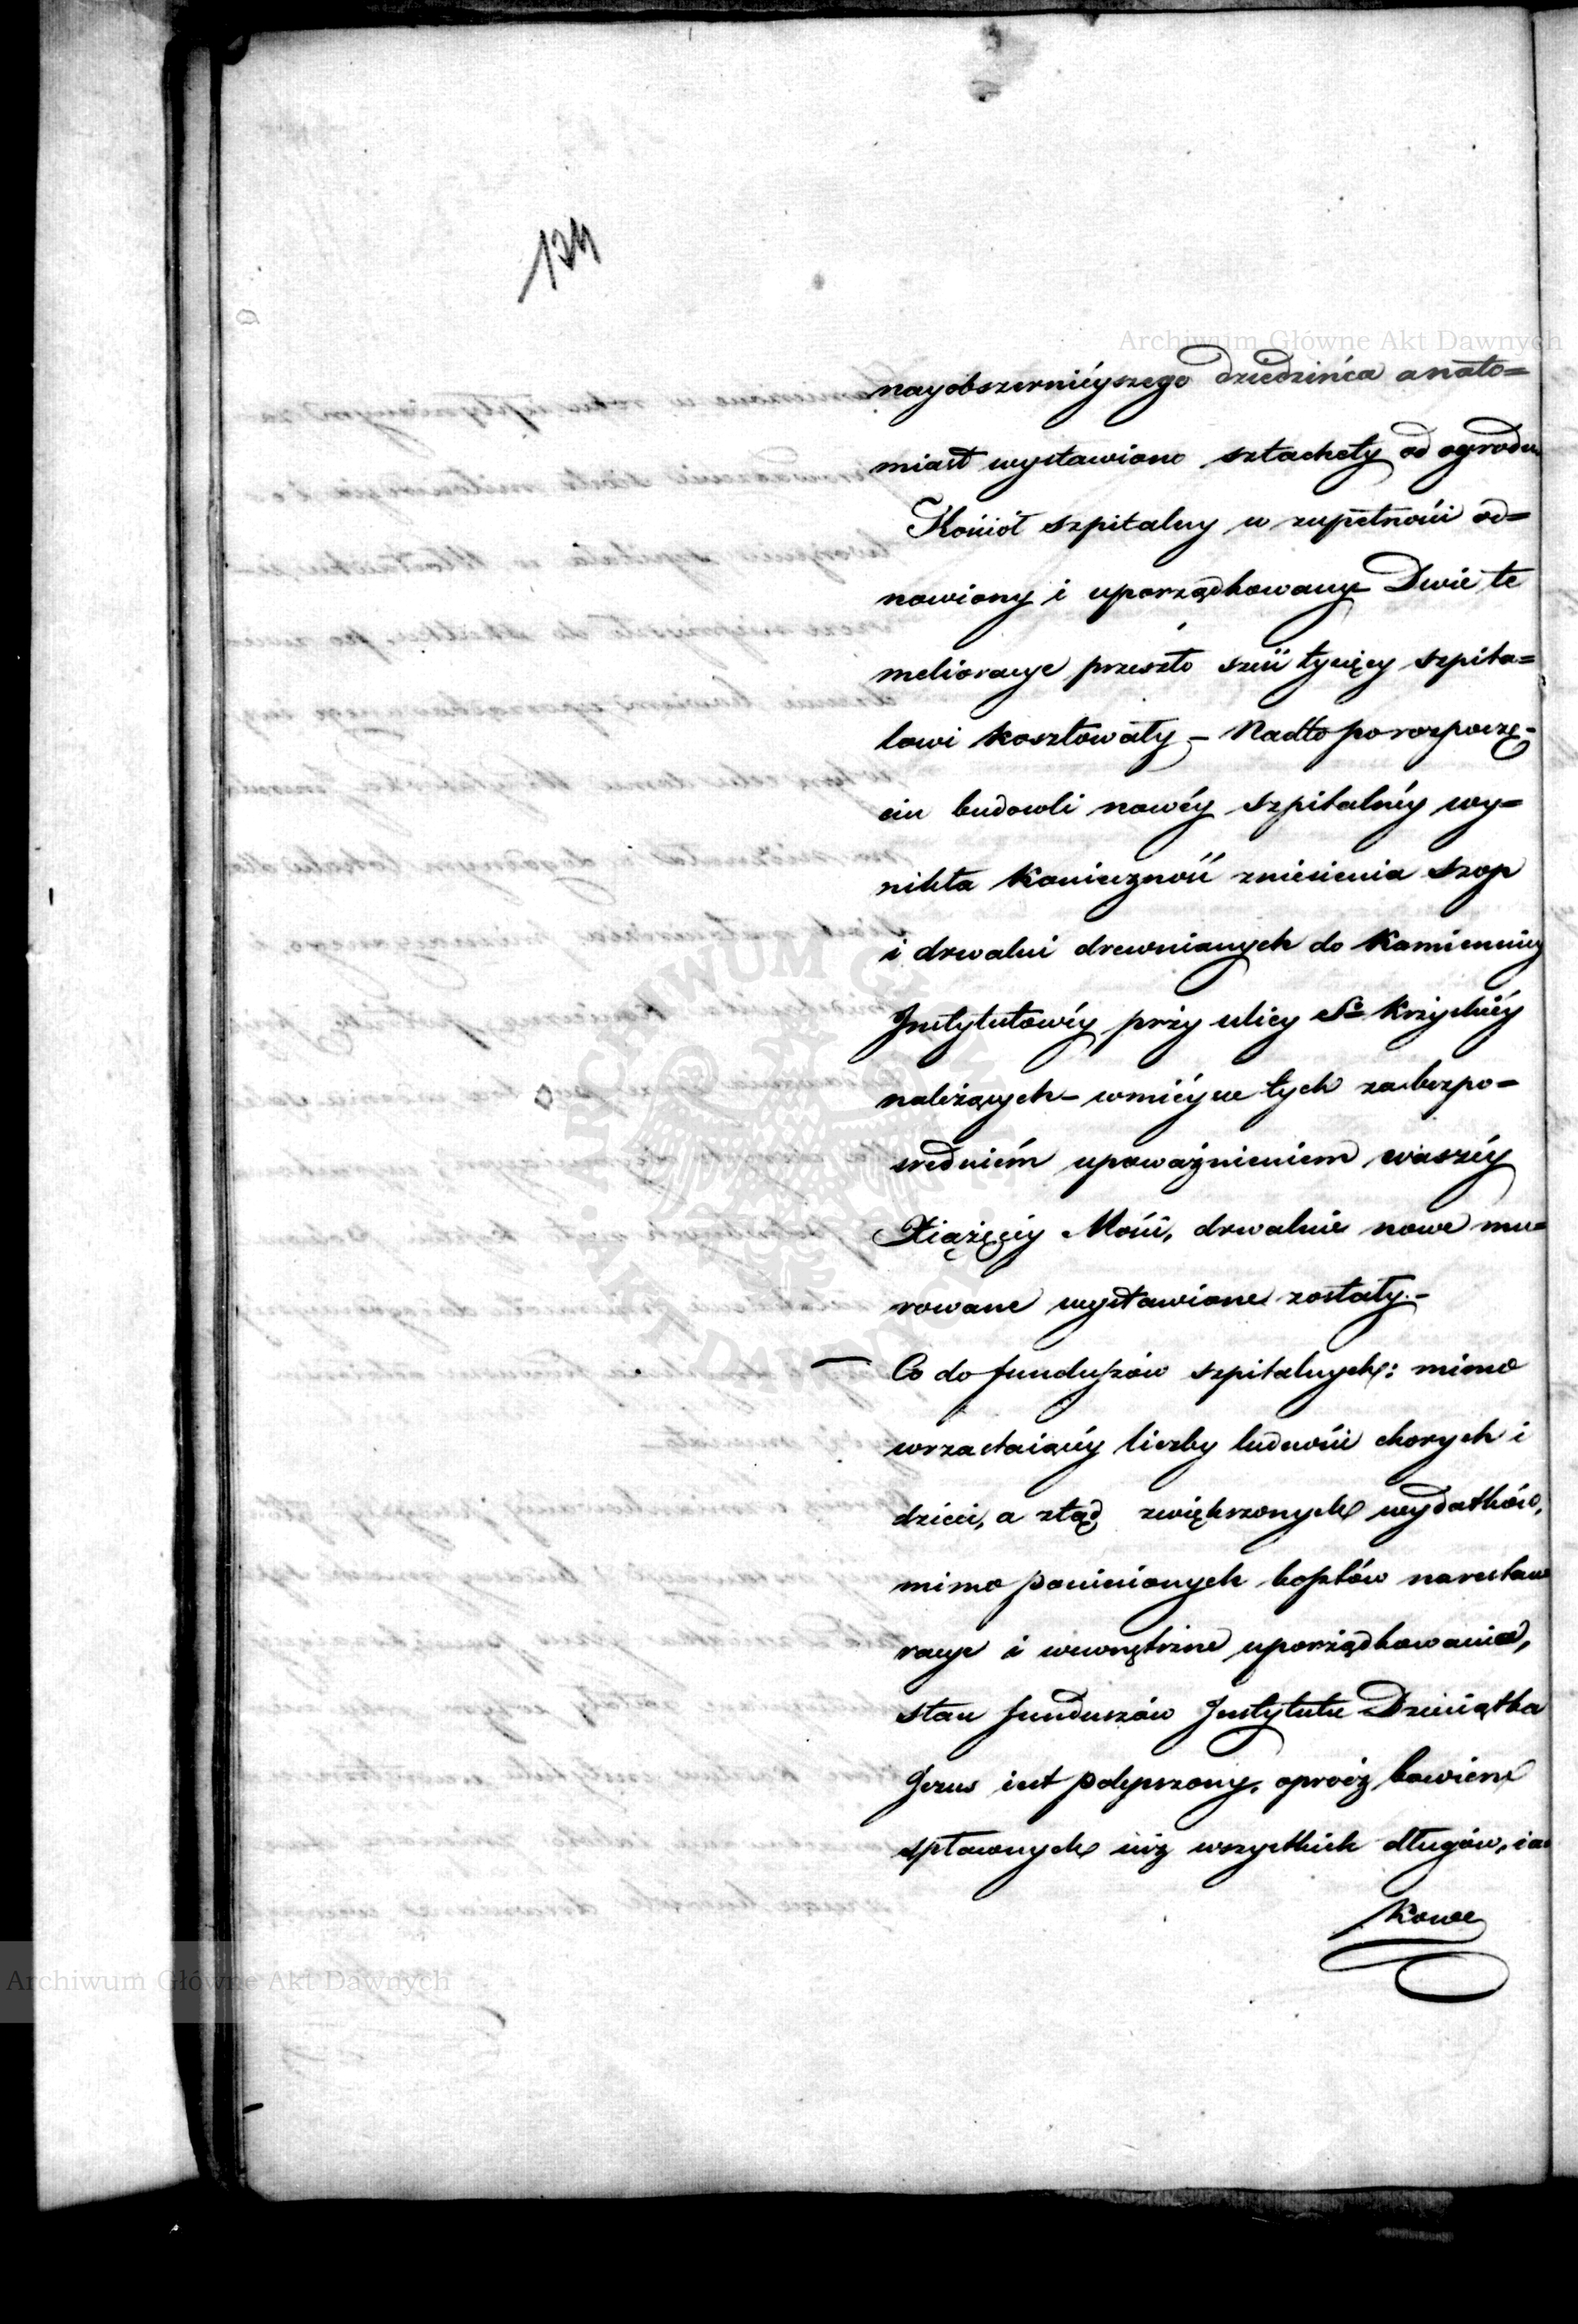 134
Archiwum Główne Akt Dawnych
nayobszernieyszego dziedzińca anato=
miast wystawiono sztachety od ogrodu
Kościół szpitalny w zupełności od=
nowiony i uporządkowany Dwie te
melioracye przeszło sześć tysięcy szpita=
lowi kosztowały – Nadto po rozpoczę-
ciu budowli nowéy szpitalnéy wy=
nikła konieczność zniesienia szop
i drwalni drewnianych do Kamienicy
Instytutowéy przy ulicy Sto Krzyskiéy
należących – w mieysce tych za bezpo=
średniém upoważnieniem waszéy
Xiążęcéy Mości, drwalnie nowe mu=
rowane wystawione zostały. –
— Co do funduszów szpitalnych: mimo
wrzastaiącéy liczby ludności chorych i
dzieci, a ztąd zwiększonych wydatków,
mimo poniesionych kosztów na restau
racye i wewnętrzne uporządkowania,
stan funduszów Instytutu Dzieciątka
Jezus iest polepszony, oprócz bowiem
spłaconych iuż wszystkich długów, ia=
kowe
Archiwum Główne Akt Dawnych
ARCHIWUM GŁÓWNE · AKT DAWNYCH ·